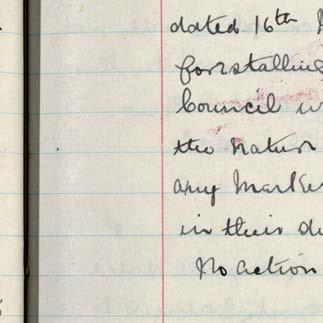 dated 16th
forestallin
Council w
the natur
any Marke
in their di
No action